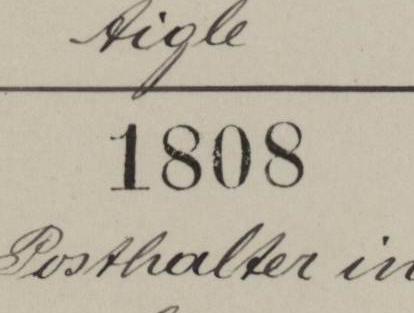 Aigle
1808
Posthalter in